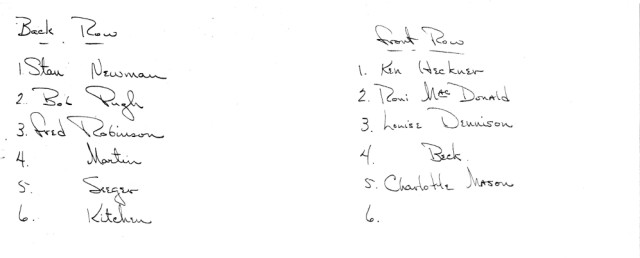 Back Row
1 Stan Newman
2. Bob Pugh
3. Fred Robinson
4. Martin
5. Seeger
6. Kitchen
Front Row
1. Ken Heckner
2. Roni MacDonald
3. Louise Dennison
4 Beck
5. Charlotte Mason
6.